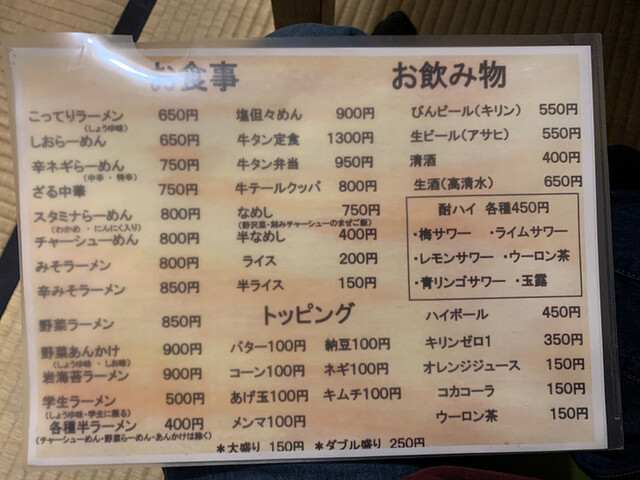 お食事
こってりラーメン 650円
(しょうゆ味)
しおらーめん 650円
辛ネギらーめん 750円
(中辛・特辛)
ざる中華 750円
スタミナらーめん 800円
(わかめ・にんにく入り)
チャーシューめん 800円
みそラーメン 800円
辛みそラーメン 850円
野菜ラーメン 850円
野菜あんかけ 900円
(しょうゆ味・しお味)
岩海苔ラーメン 900円
学生ラーメン 500円
(しょうゆ味・学生に限る)
各種半ラーメン 400円
(チャーシューめん・野菜らーめん・あんかけは除く)
塩但々めん 900円
牛タン定食 1300円
牛タン弁当 950円
牛テールクッパ 800円
なめし 750円
(野沢菜・刻みチャーシューのまぜご飯)
半なめし 400円
ライス 200円
半ライス 150円
トッピング
バター100円 納豆100円
コーン100円 ネギ100円
あげ玉100円 キムチ100円
メンマ100円
*大盛り 150円 *ダブル盛り 250円
お飲み物
びんビール(キリン) 550円
生ビール(アサヒ) 550円
清酒 400円
生酒(高清水) 650円
酎ハイ 各種450円
・梅サワー ・ライムサワー
・レモンサワー ・ウーロン茶
・青リンゴサワー ・玉露
ハイボール 450円
キリンゼロ1 350円
オレンジジュース 150円
コカコーラ 150円
ウーロン茶 150円